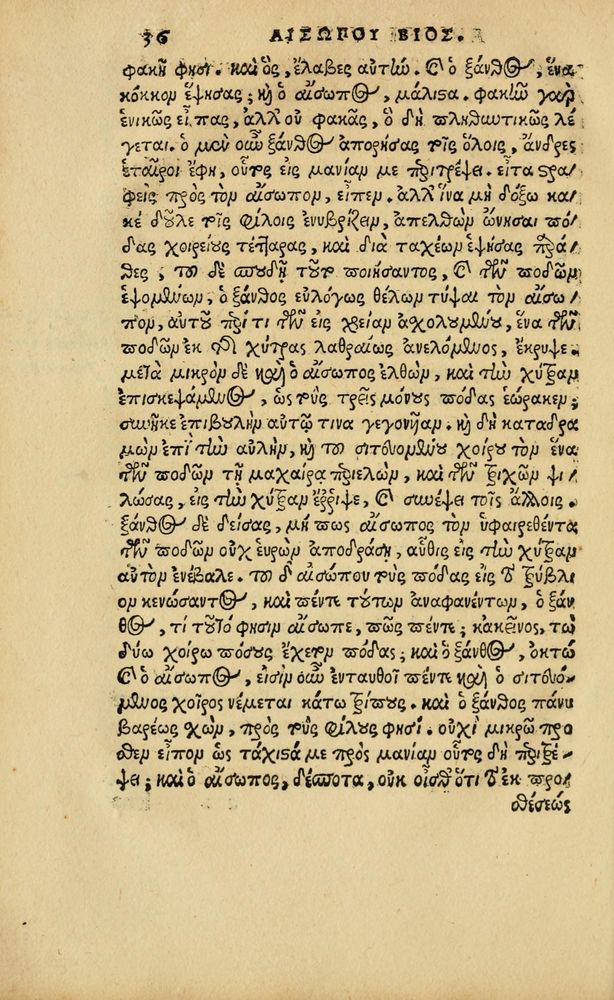 36 ΑΙΣΩΠΟΥ ΒΙΟΣ.
φακῆ φησι. καὶ ὃς, ἔλαβες αὐτὴν. καὶ ὁ ξάνθος, ἕνα
κόκκον ἕψησας; καὶ ὁ αἴσωπος, μάλιστα. φακὴν γὰρ
ἑνικῶς εἶπας, ἀλλ' οὐ φακᾶς, ὃ δὴ πληθυντικῶς λέ
γεται. ὁ μὲν οὖν ξάνθος ἀπορήσας τοῖς ὅλοις, ἄνδρες
ἑταῖροι ἔφη, οὗτος εἰς μανίαν με περιτρέψει. εἶτα στρα
φεὶς πρὸς τὸν αἴσωπον, εἶπεν. ἀλλ' ἵνα μὴ δόξω κα
κὲ δοῦλε τοῖς φίλοις ἐνυβρίζειν, ἀπελθὼν ὤνησαι πό/
δας χοιρείους τέτταρας, καὶ διὰ ταχέων ἑψήσας παρά/
θες; τοῦ δὲ σπουδῇ τοῦτο ποιήσαντος, καὶ τῶν ποδῶν
ἑψομένων, ὁ ξάνθος εὐλόγως θέλων τύψαι τὸν αἴσω/
πον, αὐτοῦ περί τι τῶν εἰς χρείαν ἀσχολουμένου, ἕνα τῶν
ποδῶν ἐκ τῆς χύτρας λαθραίως ἀνελόμενος, ἔκρυψε.
μετὰ μικρὸν δὲ καὶ ὁ αἴσωπος ἐλθὼν, καὶ τὴν χύτραν
ἐπισκεψάμενος, ὡς τοὺς τρεῖς μόνους πόδας ἑώρακεν;
συνῆκε ἐπιβουλὴν αὐτῷ τινα γεγονῆαν. καὶ δὴ καταδρα
μὼν ἐπὶ τὴν αὐλὴν, καὶ τοῦ σιτευομένου χοίρου τὸν ἕνα
τῶν ποδῶν τῇ μαχαίρᾳ περιελὼν, καὶ τῶν τριχῶν ψι/
λώσας, εἰς τὴν χύτραν ἔρριψε, καὶ συνέψει τοῖς ἄλλοις.
ξάνθος δὲ δείσας, μή πως αἴσωπος τὸν ὑφαιρεθέντα
τῶν ποδῶν οὐχ εὑρὼν ἀποδράσῃ, αὖθις εἰς τὴν χύτραν
αὐτὸν ἐνέβαλε. τοῦ δ' αἰσώπου τοὺς πόδας εἰς τὸ τρύβλι
ον κενώσαντος, καὶ πέντε τούτων ἀναφανέντων, ὁ ξάν
θος, τί τοῦτό φησιν αἴσωπε, πῶς πέντε; κἀκεῖνος, τὼ
δύω χοίρω πόσους ἔχετον πόδας; καὶ ὁ ξάνθος, ὀκτώ
καὶ ὁ αἴσωπος, εἰσὶν οὖν ἐνταυθοῖ πέντε καὶ ὁ σιτευό/
μενος χοῖρος νέμεται κάτω τρίπους. καὶ ὁ ξάνθος πάνυ
βαρέως σχὼν, πρὸς τοὺς φίλους φησί. οὐχὶ μικρῷ πρό
σθεν εἶπον ὡς τάχιστά με πρὸς μανίαν οὗτος δὴ περιτρέ-
ψει; καὶ ὁ αἴσωπος, δέσποτα, οὐκ οἶσθ' ὅτι τὸ ἐκ προσ/
θέσεώς